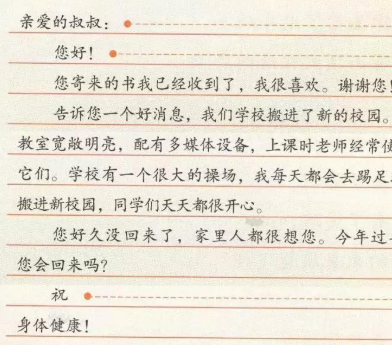 亲爱的叔叔：
您好！
您寄来的书我已经收到了，我很喜欢。谢谢您！
告诉您一个好消息，我们学校搬进了新的校园。
教室宽敞明亮，配有多媒体设备，上课时老师经常使
它们。学校有一个很大的操场，我每天都会去踢足
搬进新校园，同学们天天都很开心。
您好久没回来了，家里人都很想您。今年过
您会回来吗？
祝
身体健康！